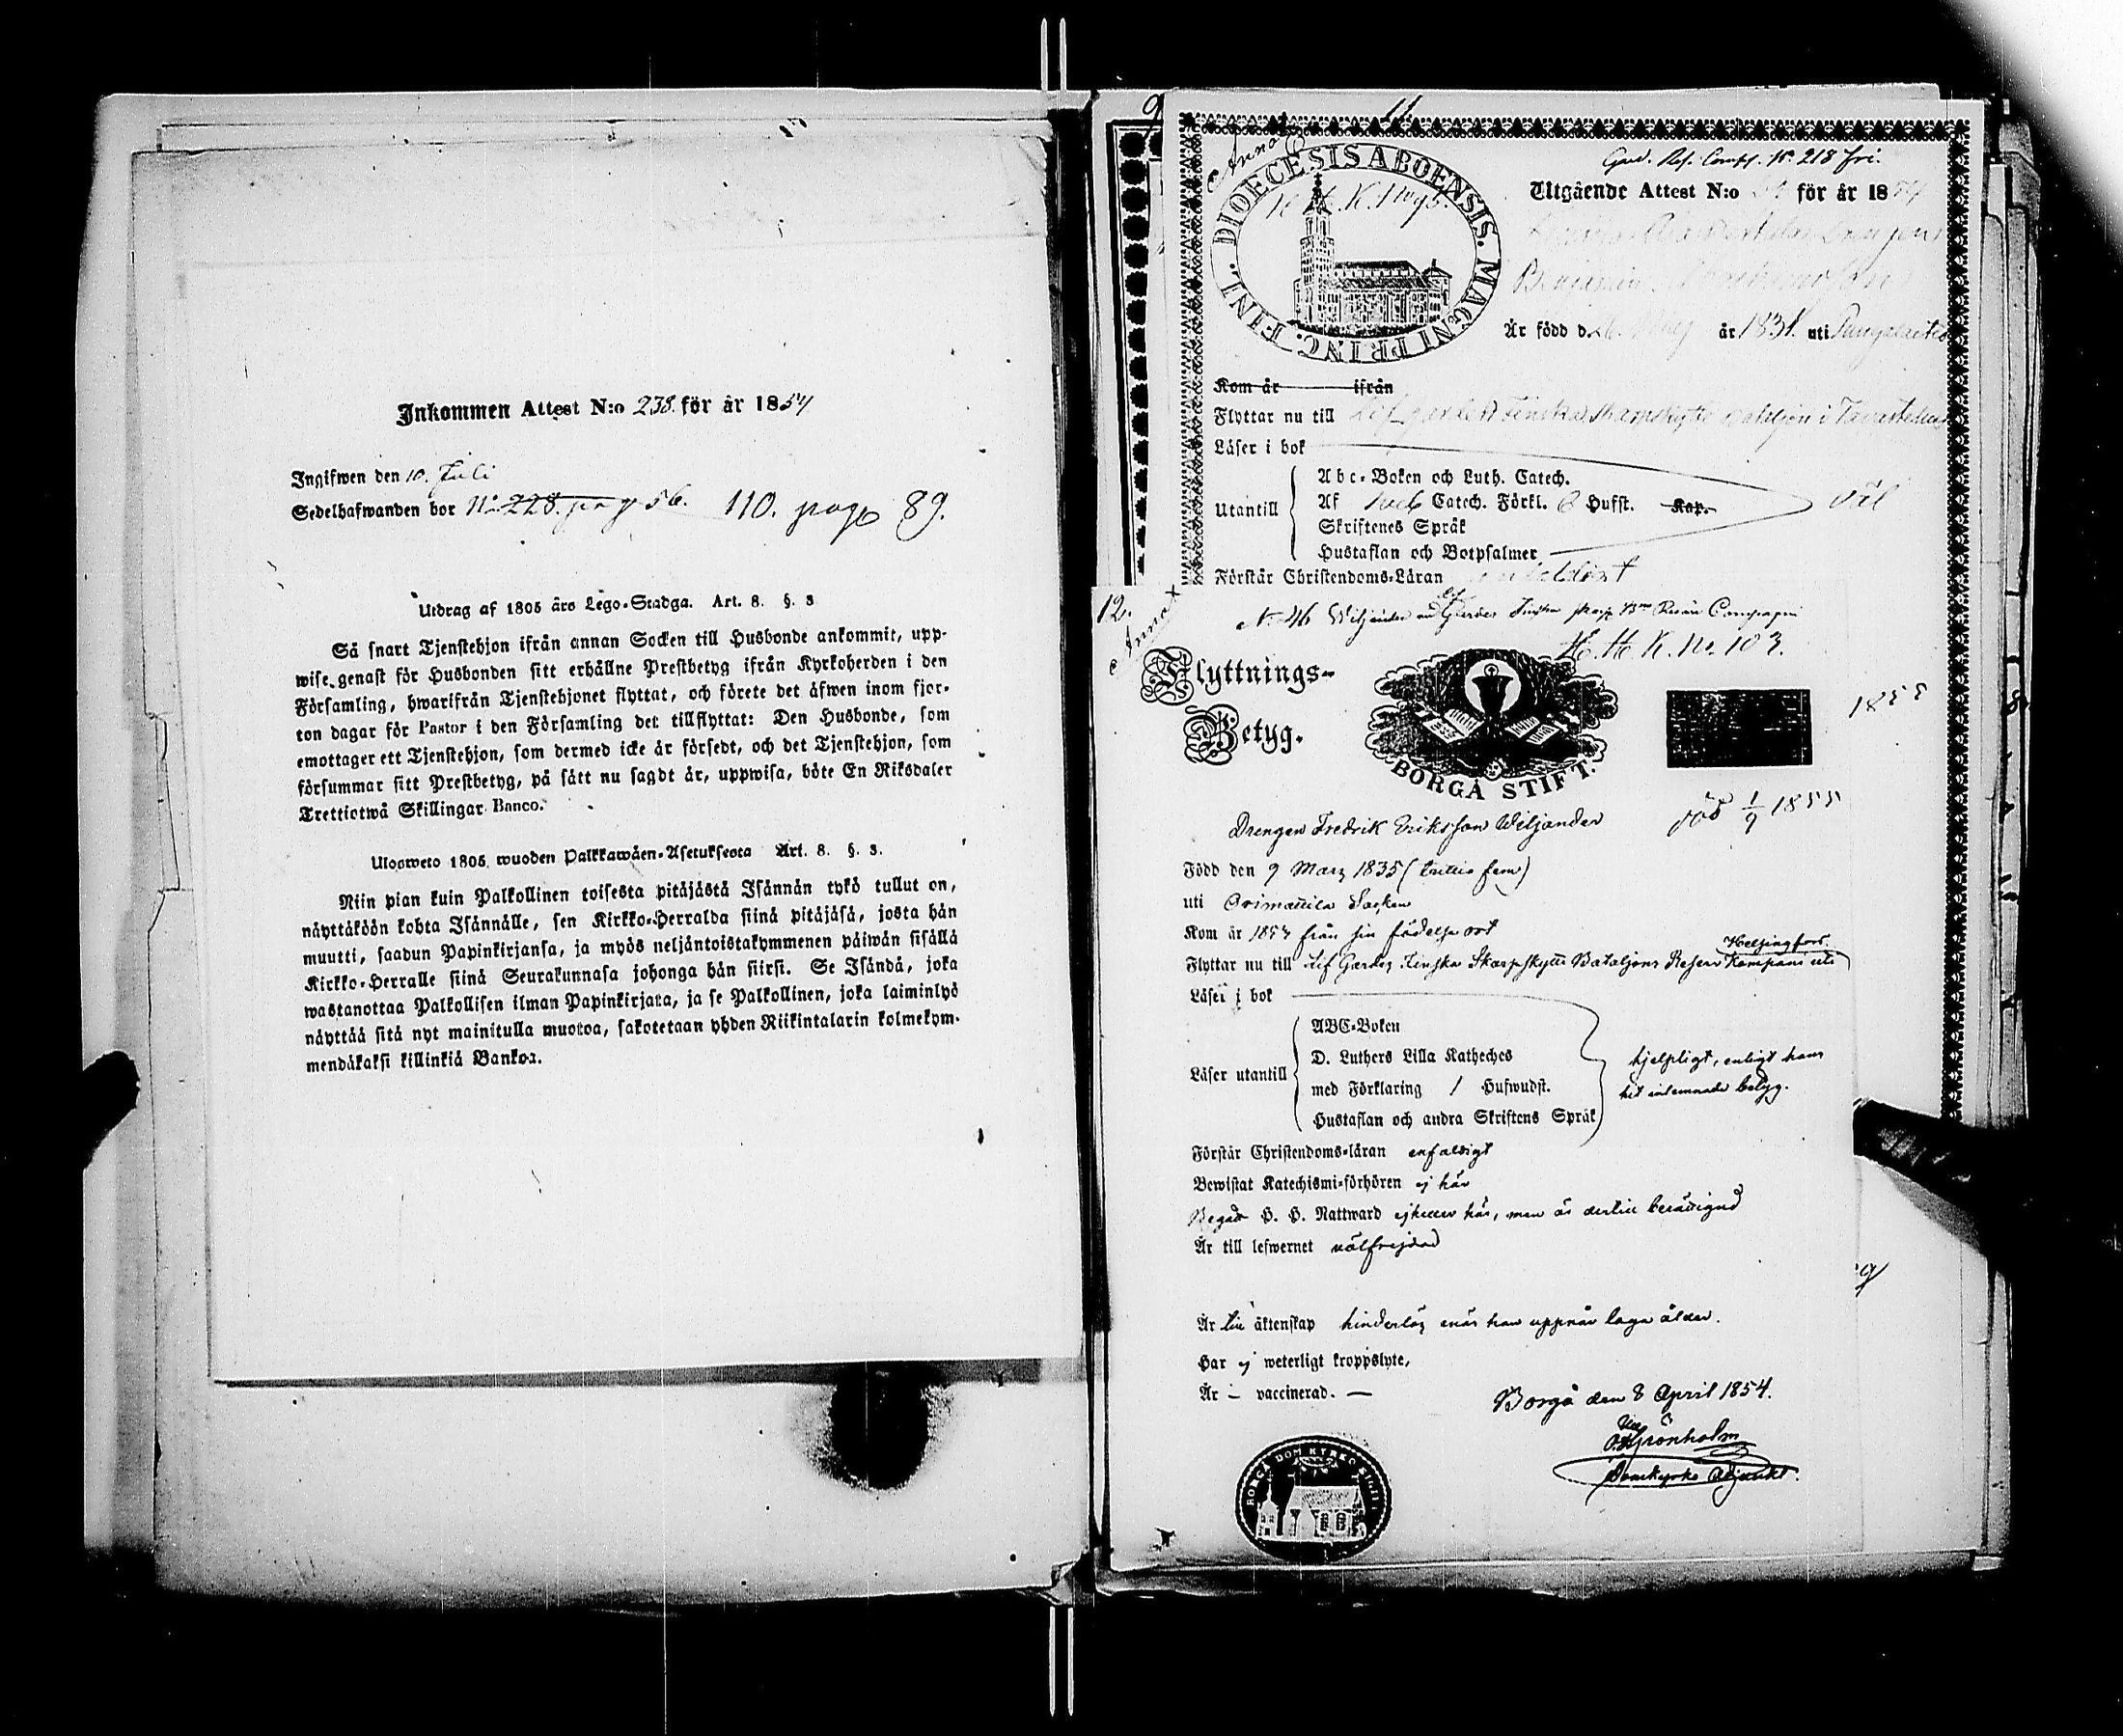 Inkommen Attest N:o 238. för år 1854
Ingifwen den 10. Juli
Sedelhafwanden bor No 228. pag 56. 110. page 89.
Utdrag af 1805 års Lego-Stadga. Art. 8. §. 3
Så snart Tjenstehjon ifrån annan Socken till Husbonde ankommit, upp-
wise genast för Husbonden sitt erhållne Prestbetyg ifrån Kyrkoherden i den
Församling, hwarifrån Tjenstehjonet flyttat, och förete det äfwen inom fjor-
ton dagar för Pastor i den Församling det tillflyttat: Den Husbonde, som
emottager ett Tjenstehjon, som dermed icke är försedt, och det Tjenstehjon, som
försummar sitt Prestbetyg, på sätt nu sagdt är, uppwisa, böte En Riksdaler
Trettiotwå Skillingar Banco.
Ulosweto 1805 wuoden Palkkawäen-Asetuksesta Art. 8. §. 3.
Niin pian kuin Palkollinen toisesta pitäjästä Isännän tykö tullut on,
näyttäköön kohta Isännälle, sen Kirkko-Herralda siinä pitäjäsä, josta hän
muutti, saadun Papinkirjansa, ja myös neljäntoistakymmenen päiwän sisällä
Kirkko-Herralle siinä Seurakunnasa johonga hän siirsi. Se Isändä, joka
wastanottaa Palkollisen ilman Papinkirjata, ja se Palkollinen, joka laiminlyö
näyttää sitä nyt mainitulla muotoa, sakotetaan yhden Riikintalarin kolmekym-
mendäkaksi killinkiä Bankoa.
9
11.
Anna
Gard. Res. Comp. No 218 fri.
DIOECESIS ABOENSIS. MAGNI PRINC. FINL.
Utgående Attest N:o för år 18
Är född d. år 1831. uti
Kom år ifrån
Flyttar nu till Finska Skarpskytte Bataljon i Tavastehus
Läser i bok
Utantill
Abc-Boken och Luth. Catech.
Af Catech. Förkl. 6 Hufst. Kap.
Skriftenes Språk
Hustaflan och Botpsalmer
väl
Förstår Christendoms-Läran
12.
Anna
No 46 Wiljander Lif Gardes Finska skarp Bns Reserv Compagni
H. H. K. No. 103.
Flyttnings-
Betyg.
BORGÅ STIFT.
1855
död 1/9 1855
Drengen Fredrik Eriksson Wiljander
Född den 9 Mars 1835 (trettio fem)
uti Orimattila Socken
Kom år 1853 från sin födelse ort
Helsingfors.
Flyttar nu till Lif Gardes Finska Skarpskytte Bataljons Reserv Kompani uti
Läser i bok
Läser utantill
ABC-Boken
D. Luthers Lilla Katheches
med Förklaring 1 Hufwudst.
Hustaflan och andra Skriftens Språk
hjelpligt, enligt hans
hit inlemnade betyg.
Förstår Christendoms-läran enfaldigt
Bewistat Katechismi-förhören ej här
Begår H. H. Nattward ej heller här, men är dertill berättigad
Är till lefwernet välfrejdad
Är till äktenskap hinderlös enär han uppnår laga ålder.
Har ej weterligt kroppslyte,
Är – vaccinerad. —
Borgå den 8 April 1854.
Domkyrko Adjunkt.
BORGÅ DOM KYRKO SIGILL